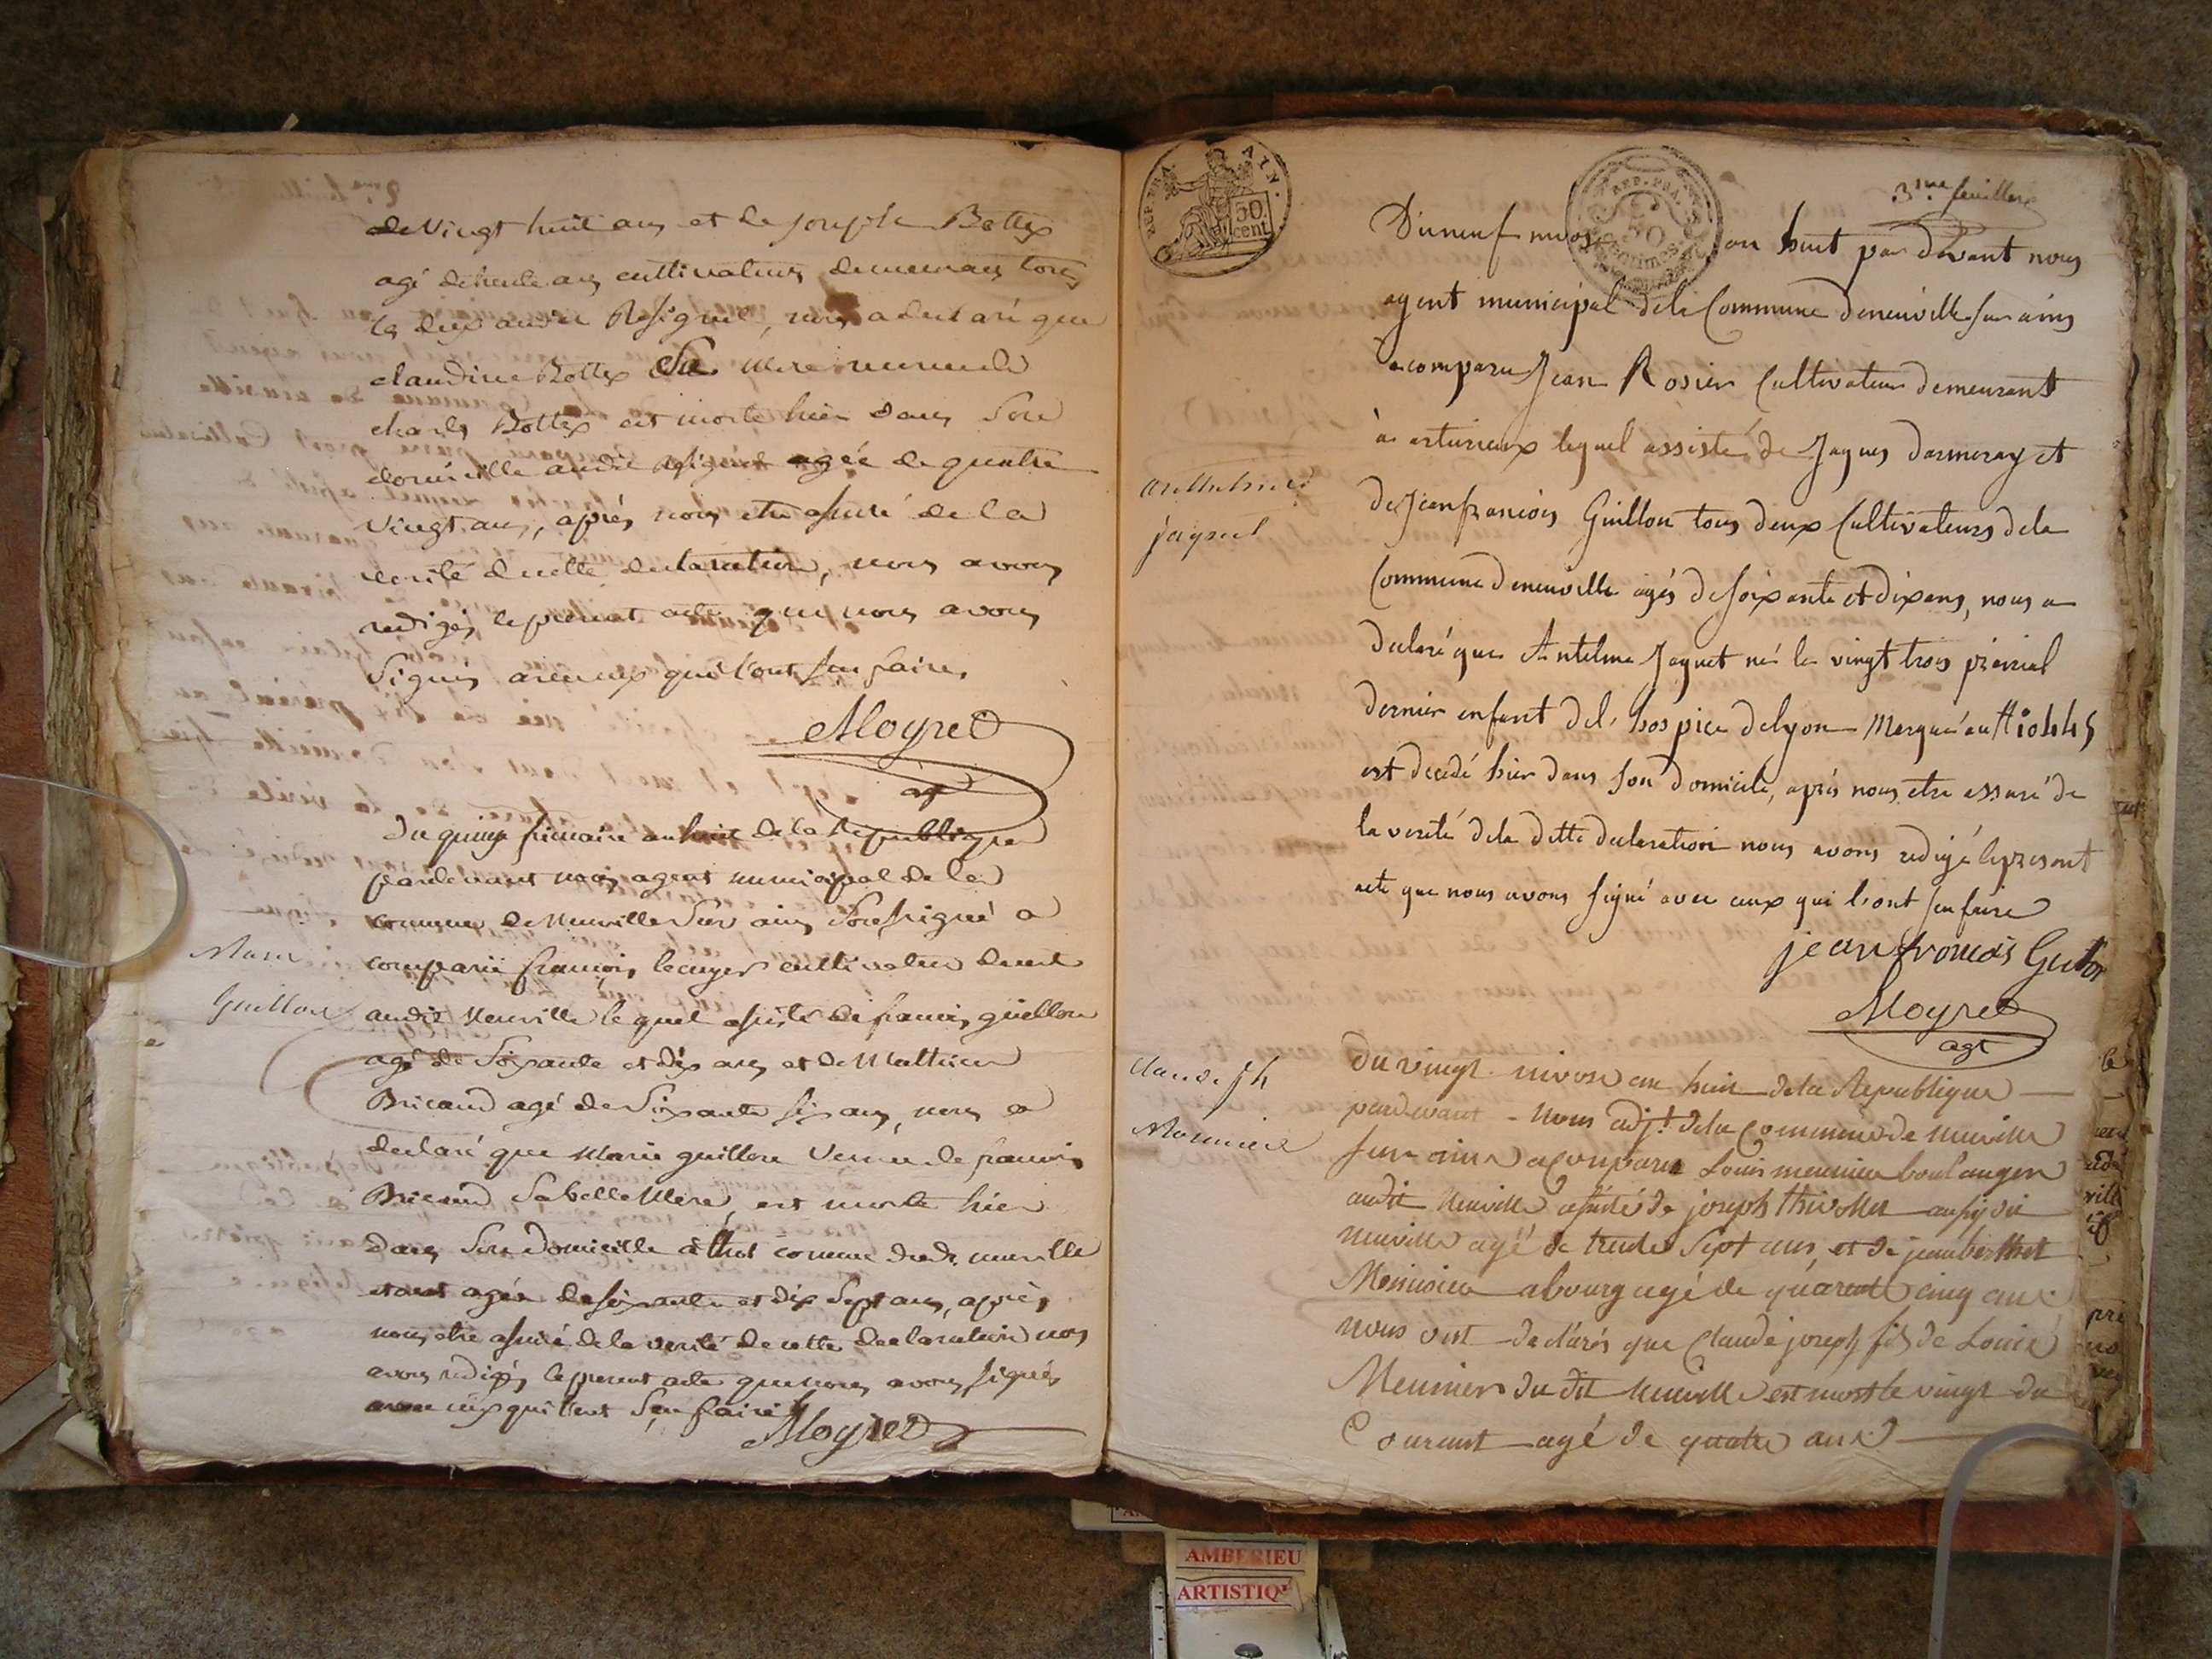 de vingt huit ans et de joseph Bottex
agé de trente ans cultivateurs demeurans tous
les deux audit Resignel, nous a declaré que
claudine Bottex Sa mere veuve de
charles Bottex est morte hier dans Son
domicille audit agée de quatre
vingt ans, aprés nous etre assuré de la
verité de cette declaration, nous avons
redigés le présent acte que nous avons
Signés avec ceux qui l'ont sçu faire,
Moyret
agt
Marie
Guillon
Du quinze frimaire an huit de la Republique
pardevant nous agent municipal de la
comune de Neuville Sur ains Soussigné a
comparu françois cultivateur demt
audit Neuville lequel assisté de francois guillon
agé de Soixante et dix ans et de Matthieu
Bricaud agé de Soixante six ans, nous a
declaré que Marie guillon veuve de francois
Bricaud Sa belle Mere, est morte hier
dans Son Domicille à thol comune dudt neuville
etant agée de soixante et dix Sept ans, aprés
nous etre assuré de la verité de cette declaration nous
avons redigés le present acte que nous avons signés
avec ceux qui l'ont Sçu faire
Moyret
REP. FRA. AIN.
50 cent
REP. FRA.
50 centimes
3me feuillet
anthelme
jaquet
Du neuf nivose an huit par devant nous
agent municipal de la Commune de neuville sur ains
a comparu Jean Rosier Cultivateur demeurant
à lequel assisté de Jaques Darmeray et
de Jean françois Guillon tous deux Cultivateurs de la
Commune de neuville agés de soixante et dix ans, nous a
declaré que Antelme Jaquet né le vingt trois prairial
dernier enfant de l'hospice de lyon Merqué au
est decedé hier dans son domicile, après nous etre assuré de
la verité de la ditte declaration nous avons redigé le present
acte que nous avons signé avec ceux qui l'ont scu faire
jean francois
Moyret
agt
Claude jh
Mounier
Du vingt nivose an huit de la Republique
pardevant nous adjt de la Commune de neuville
sur ains a comparu Louis meunier boulanger
audit Neuville assisté de joseph thivollet aussy du
neuville agé de trente Sept ans, et de jean berthet
Menuisier a bourg agé de quarente cinq ans
nous ont declarés que Claude joseph fils de Louis
Meunier du dit neuville est mort le vingt du
Courant agé de quatre ans
AMBERIEU
ARTISTIQ